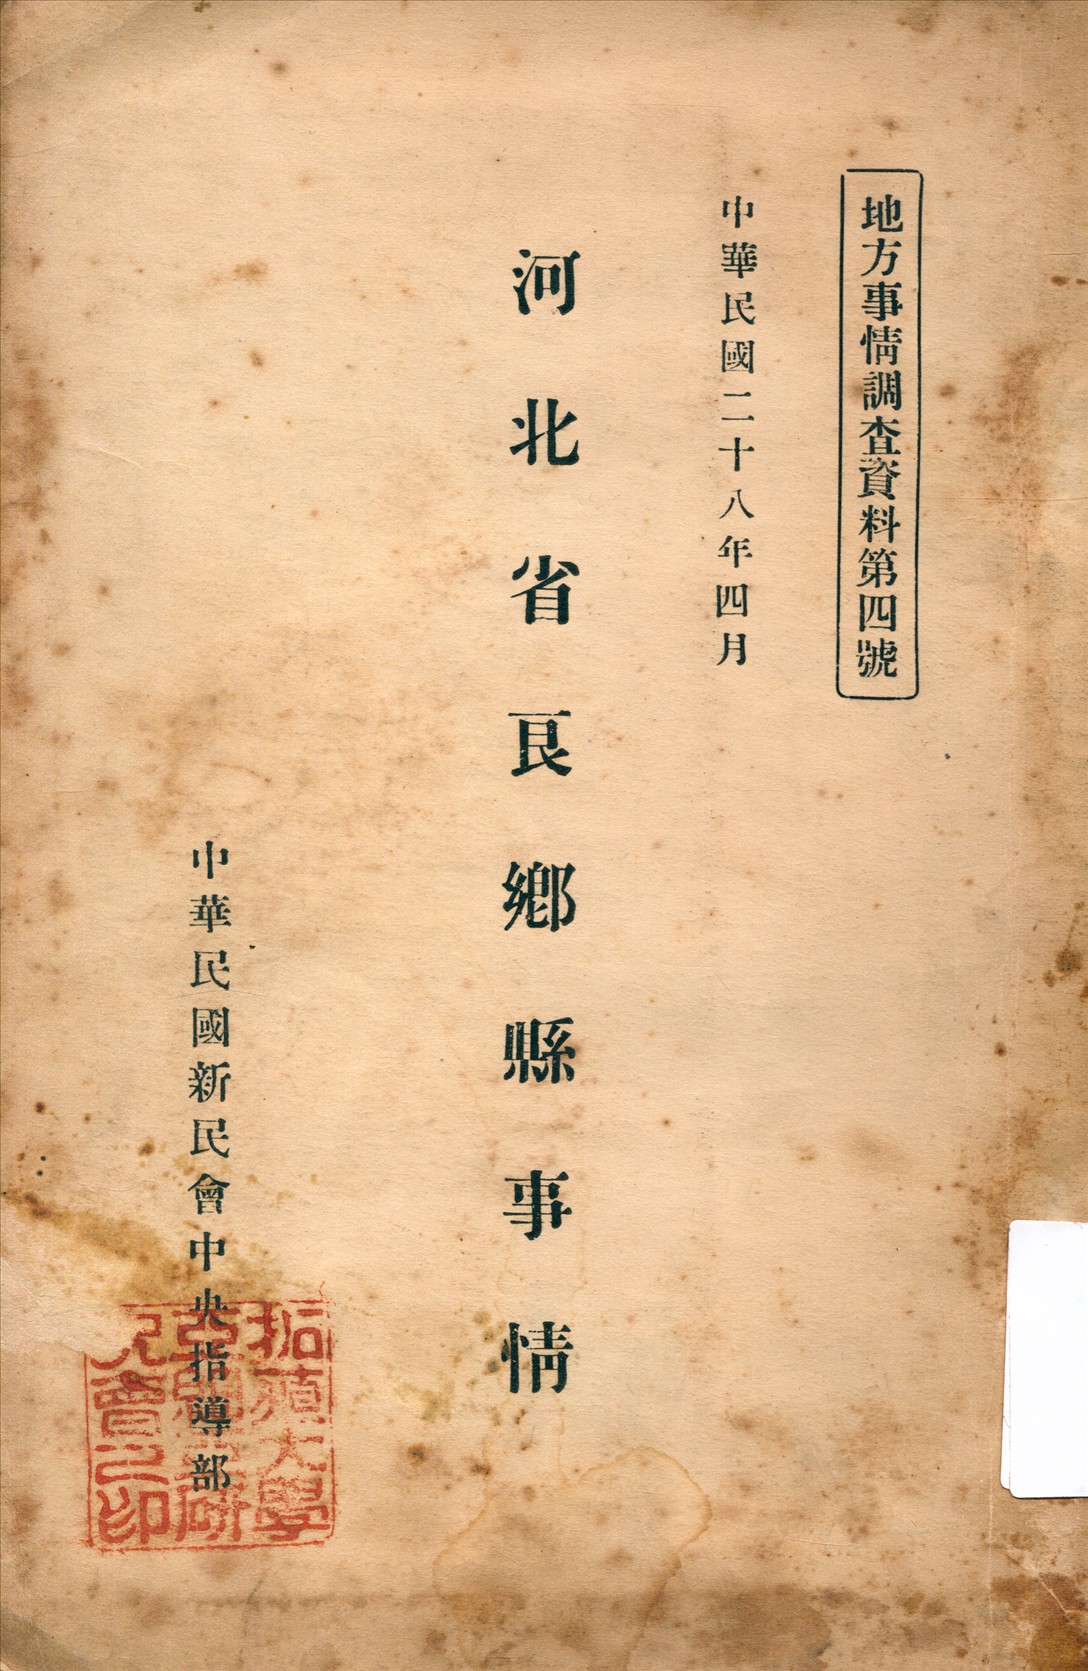 地方事情調查資料第四號
中華民國二十八年四月
河北省良鄉縣事情
中華民國新民會中央指導部
拓殖大學